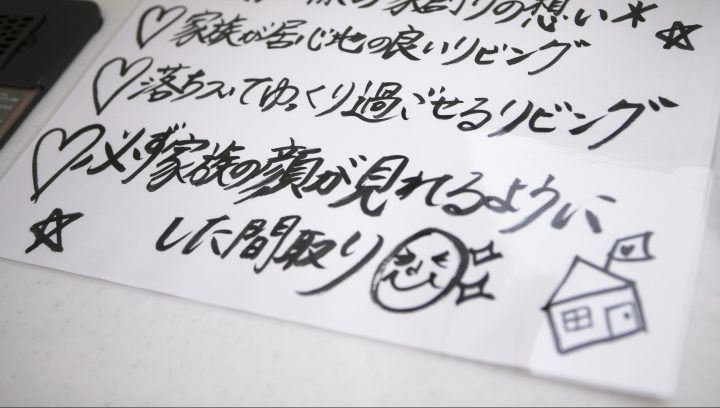 の想い
家族が居心地の良いリビング
落ちついてゆっくり過ごせるリビング
必ず家族の顔が見れるように
した間取り